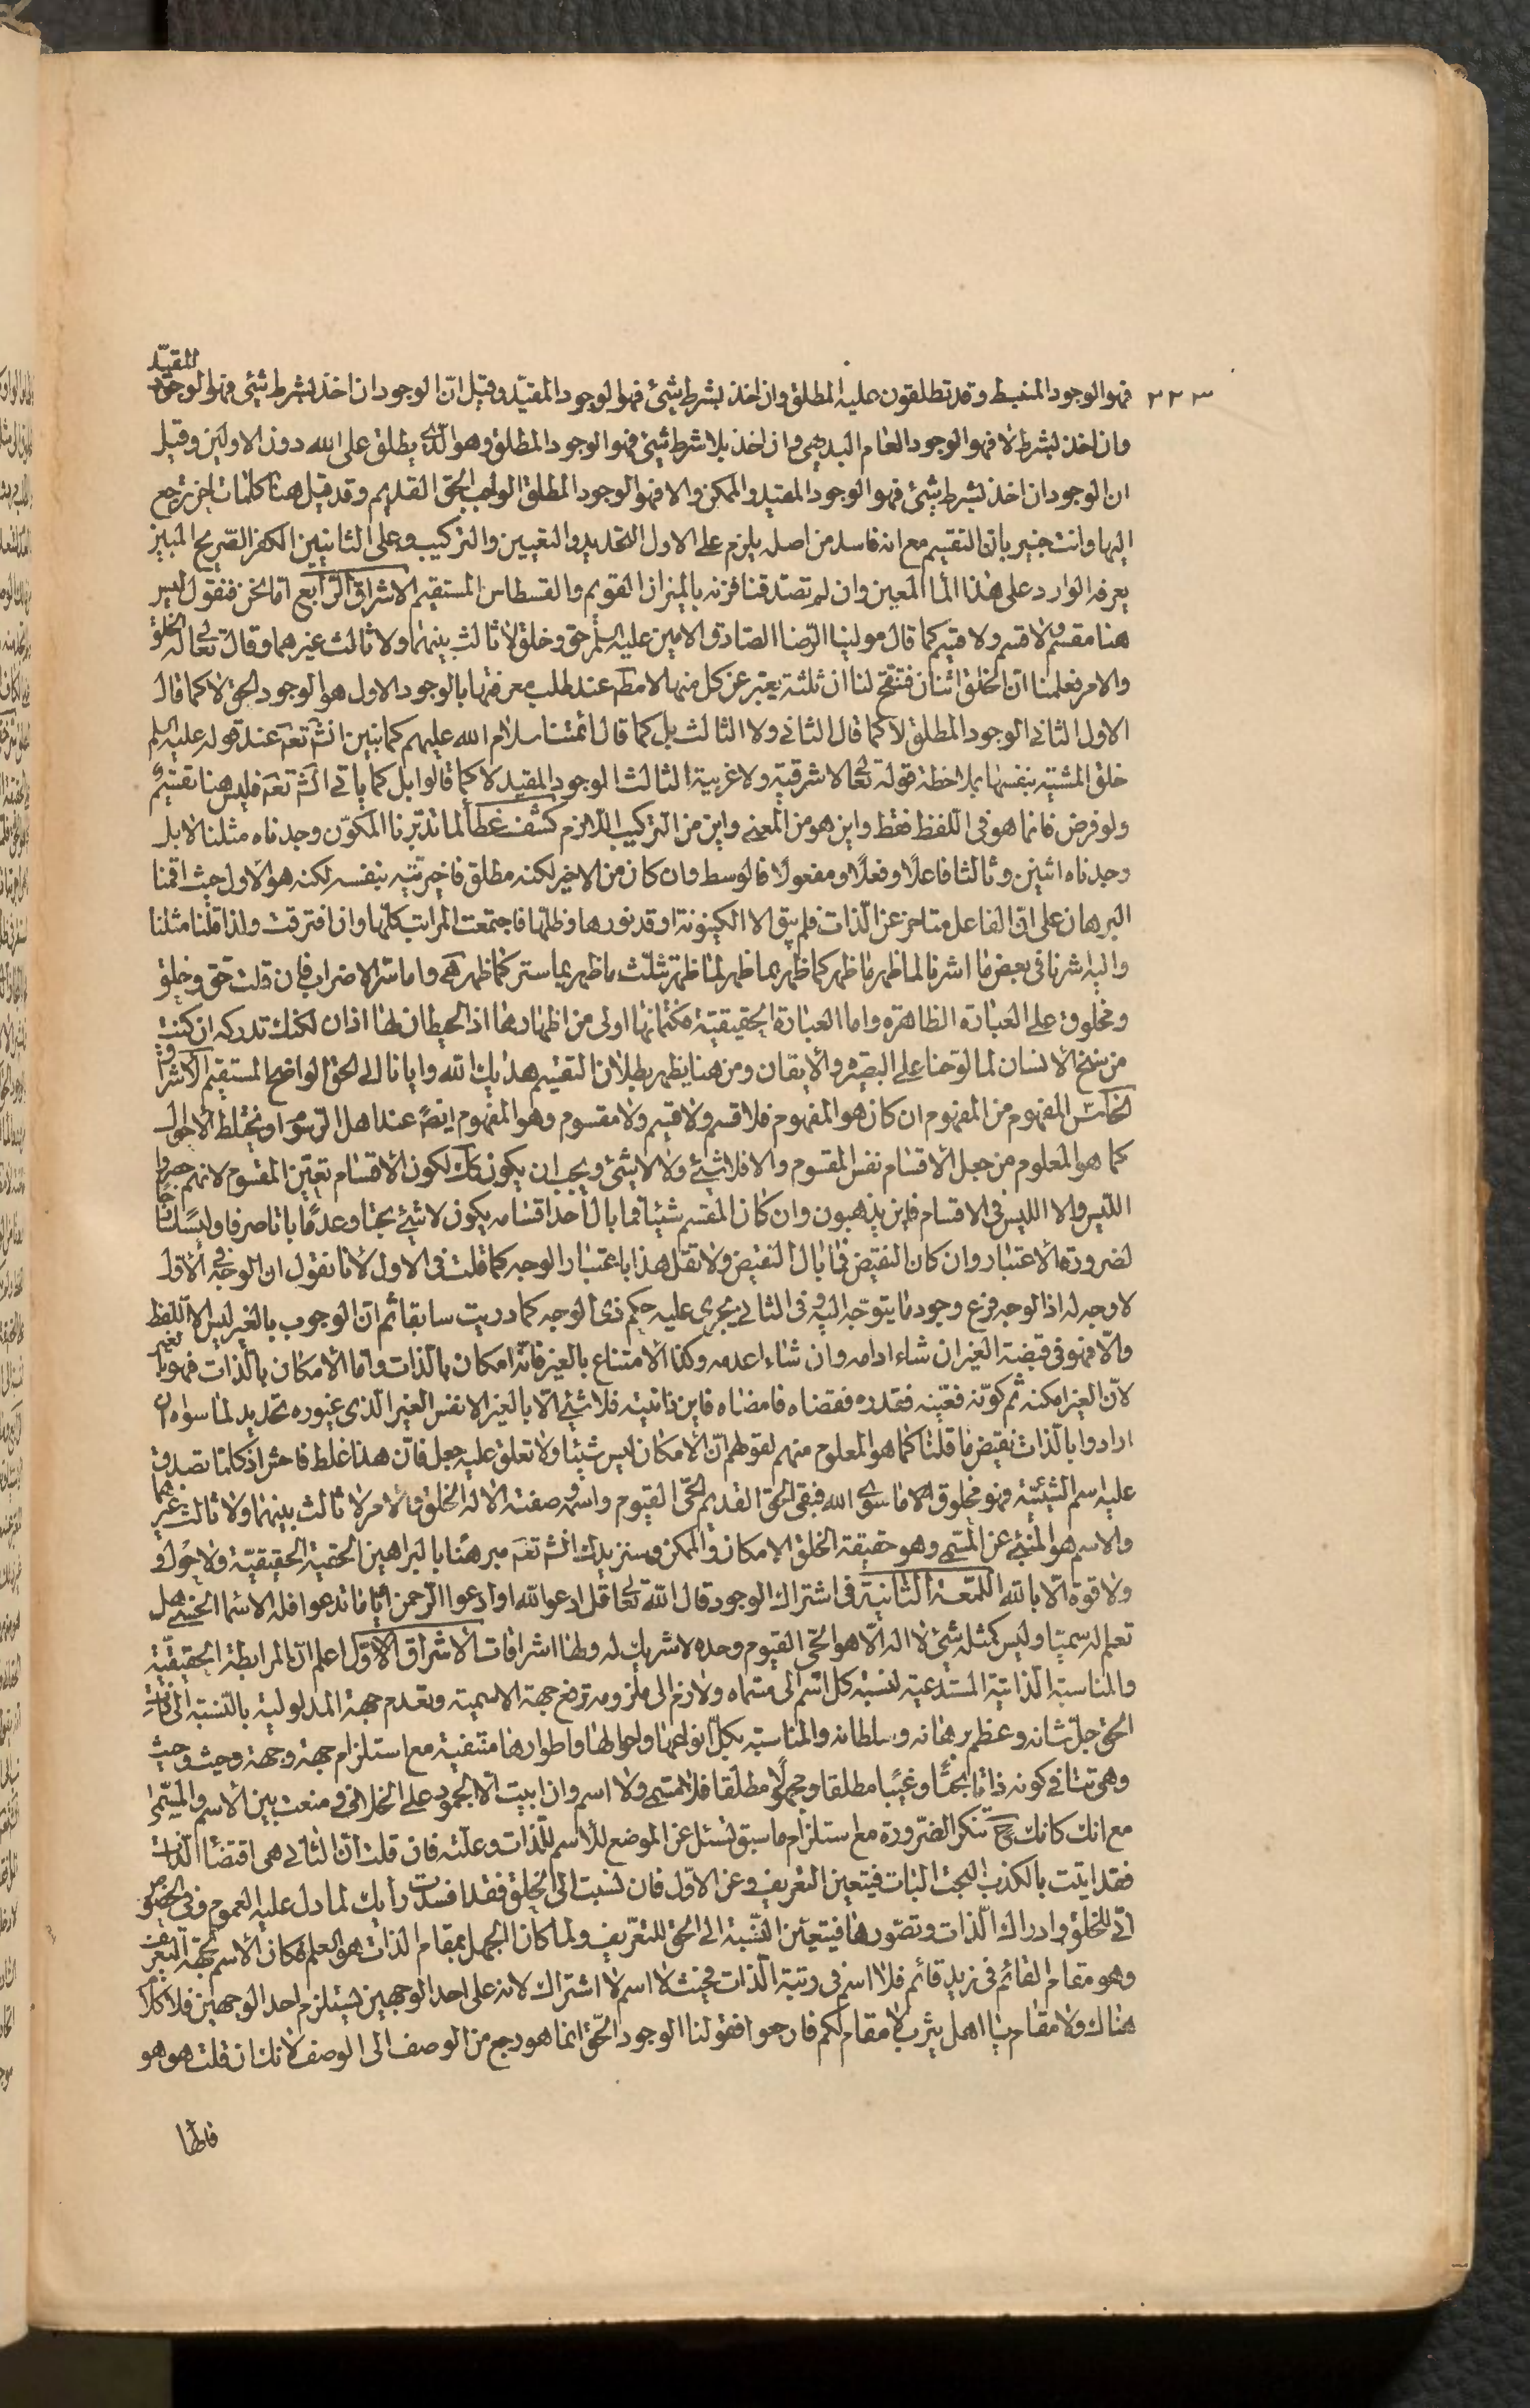 ٣٢٣
فهو الوجود المنبسط وقد تطلقون عليه المطلق وان اخذ بشرط شيئ فهو الوجود المقيد وقيل ان الوجود ان اخذ بشرط شيئ فهو الوجود المقيد
وان اخذ بشرط لا فهو الوجود العام البديهي وان اخذ بلا شرط شيئ فهو الوجود المطلق وهو الذي يطلق على الله دون الاولين وقيل
ان الوجود ان اخذ بشرط شيئ فهو الوجود المقيد والممكن والا فهو الوجود المطلق الواجب الحق القديم وقد قيل هنا كلمات اخر ترجع
اليها وانت خبير بان التقسيم مع انه فاسد من اصله يلزم على الاول التحديد والتعيين والتركيب وعلى الثانيين الكفر الصريح المبين
يعرفه الوارد على هذا الماء المعين وان لم تصدقنا فزنه بالميزان القويم والقسطاس المستقيم الاشراق الرابع اما نحن فنقول ليس
هنا مقسم ولا قسم ولا قسيم كما قال مولينا الرضا الصادق الامين عليه السلم حق وخلق لا ثالث بينهما ولا ثالث غيرهما وقال تعالى له الخلق
والامر فعلمنا ان الخلق اثنان فتنقح لنا ان ثلثة يعبر عن كل منها لامطم عند طلب معرفتها بالوجود الاول هو الوجود الحق لا كما قال
الاول الثاني الوجود المطلق لا كما قال الثاني ولا الثالث بل كما قال ائمتنا سلام الله عليهم كما نبين انشم تعم عند قوله عليه السلم
خلق المشية بنفسها بملاحظة قوله تعالى لا شرقية ولا غربية الثالث الوجود المقيد لا كما قالوا بل كما يأتي انشم تعم فليس هنا تقسيم
ولو فرض فانما هو في اللفظ فقط واين هو من المعنى واين من التركيب اللازم كشف غطاء لما تدبرنا المكون وجدناه مثلنا لا بل
وجدناه اثنين وثالثا فاعلا وفعلا ومفعولا فالوسط وان كان من الاخير لكنه مطلق فاخير تنيه بنفسه لكنه هو الاول حيث اقمنا
البرهان على ان الفاعل متاخر عن الذات فلم يبق الا الكينونة او قد نورها وظلها فاجتمعت المراتب كلها وان افترقت ولذا قلنا مثلنا
واليه اشرنا في بعض ما اشرنا لما ظهر ما ظهر كما ظهر بما ظهر لما ظهر تثلث ما ظهر بما ستر كما ظهر واما متر الاضراب فان قلت حق وخلق
ومخلوق على العبارة الظاهرة واما العبارة الحقيقية فكتمانها اولى من اظهارها اذ الحيطان لها اذان لكنك تدركه ان كنت
من سنخ الانسان لما لوحنا على البصيرة والايقان ومن هنا يظهر بطلان التقسيم هديك الله وايانا الى الحق الواضح المستقيم الاشراق
الخامس المفهوم من المفهوم ان كان هو المفهوم فلا قسم ولا قسيم ولا مقسوم وهو المفهوم ايضا عند اهل الرسوم او نختلط الاحوال
كما هو المعلوم من جعل الاقسام نفس المقسوم والا فلا شيئ ولا لا شيئ ويجب ان يكون كك لكون الاقسام تعين المقسوم لانهم حصروا
الليس والا الليس في الاقسام فاين يذهبون وان كان المقسم شيئا فما بال احد اقسامه يكون لا شيئ بحتا وعدما باتا صرفا وليسا
لضرورة الاعتبار وان كان النقيض فما بال النقيض ولا تقل هذا باعتبار الوجه كما قلت في الاول لانا نقول ان الوجه في الاول
لا وجه له اذ الوجه فرع وجود ما يتوجه اليه وفي الثاني يجري عليه حكم ذي الوجه كما دريت سابقا ثم ان الوجوب بالغير ليس الا اللفظ
والا فهو في قبضة الغير ان شاء ادامه وان شاء اعدمه وكذا الامتناع بالغير فانه امكان بالذات واما الامكان بالذات فهو بالغير
لان الغير امكنه ثم كونه فعينه فقدره فقضاه فامضاه فاين ذاتيته فلا شيئ الا بالغير الا نفس الغير الذي غيوره تحديد لما سواه ان
ارادوا بالذات نقيض ما قلنا كما هو المعلوم منهم لقولهم ان الامكان ليس شيئا ولا تعلق عليه جعل فان هذا غلط فاحش اذ كلما تصدق
عليه اسم الشيئية فهو مخلوق الا ما سوى الله فبقي الحق القديم الحي القيوم واسمه وصفته الا له الخلق والامر لا ثالث بينهما ولا ثالث غيرهما
والاسم هو المنبئ عن المسمى وهو حقيقة الخلق الامكان والممكن وسنزيدك انشم تعم مبرهنا بالبراهين الحقية الحقيقية ولا حول و
ولا قوة الا بالله اللمعة الثانية في اشتراك الوجود قال الله تعالى قل ادعوا الله او ادعوا الرحمن اياما تدعوا فله الاسماء الحسنى هل
تعلم له سميا وليس كمثله شيئ لا اله الا هو الحي القيوم وحده لا شريك له ولها اشراقات الاشراق الاول اعلم ان المرابطة الحقيقية
والمناسبة الذاتية المستدعية لنسبة كل اسم الى مسماه ولازم الى ملزومه ترفع جهة الاسمية وتعدم جهة المدلولية بالنسبة الى ذات
الحق جل شانه وعظم برهانه وسلطانه والمناسبة بكل انواعها واحوالها واطوارها منتفية مع استلزام جهة وجهة وحيث وحيث
وهي تنافي كونه ذاتا بحتا وغيبا مطلقا ومجهولا مطلقا فلا مسمى ولا اسم وان ابيت الا الجمود على الخلاف في منعت بين الاسم والمسمى
مع انك كانك ح تنكر الضرورة مع استلزام ما سبق نسئل عن الموضع للاسم للذات وعلته فان قلت ان الثاني هي اقتضاء الذات
فقد اتيت بالكذب البحت البات فيتعين التعريف وعن الاول فان نسبت الى الخلق فقد افسدت رايك لما دل عليه العموم وفي الخصوص
اني للخلق وادراك الذات وتصورها فيتعين النسبة الى الحق للتعريف ولما كان الجهل بمقام الذات هو العلم فكان الاسم لجهة التعريف
وهو مقام القائم في زيد قائم فلا اسم في رتبة الذات فحيث لا اسم لا اشتراك لانه على احد الوجهين يستلزم احد الوجهين فلا كلام
هناك ولا مقام يا اهل يثرب لا مقام لكم فارجعوا فقولنا الوجود الحق انما هو رجع من الوصف الى الوصف لانك ان قلت هو هو
فالها